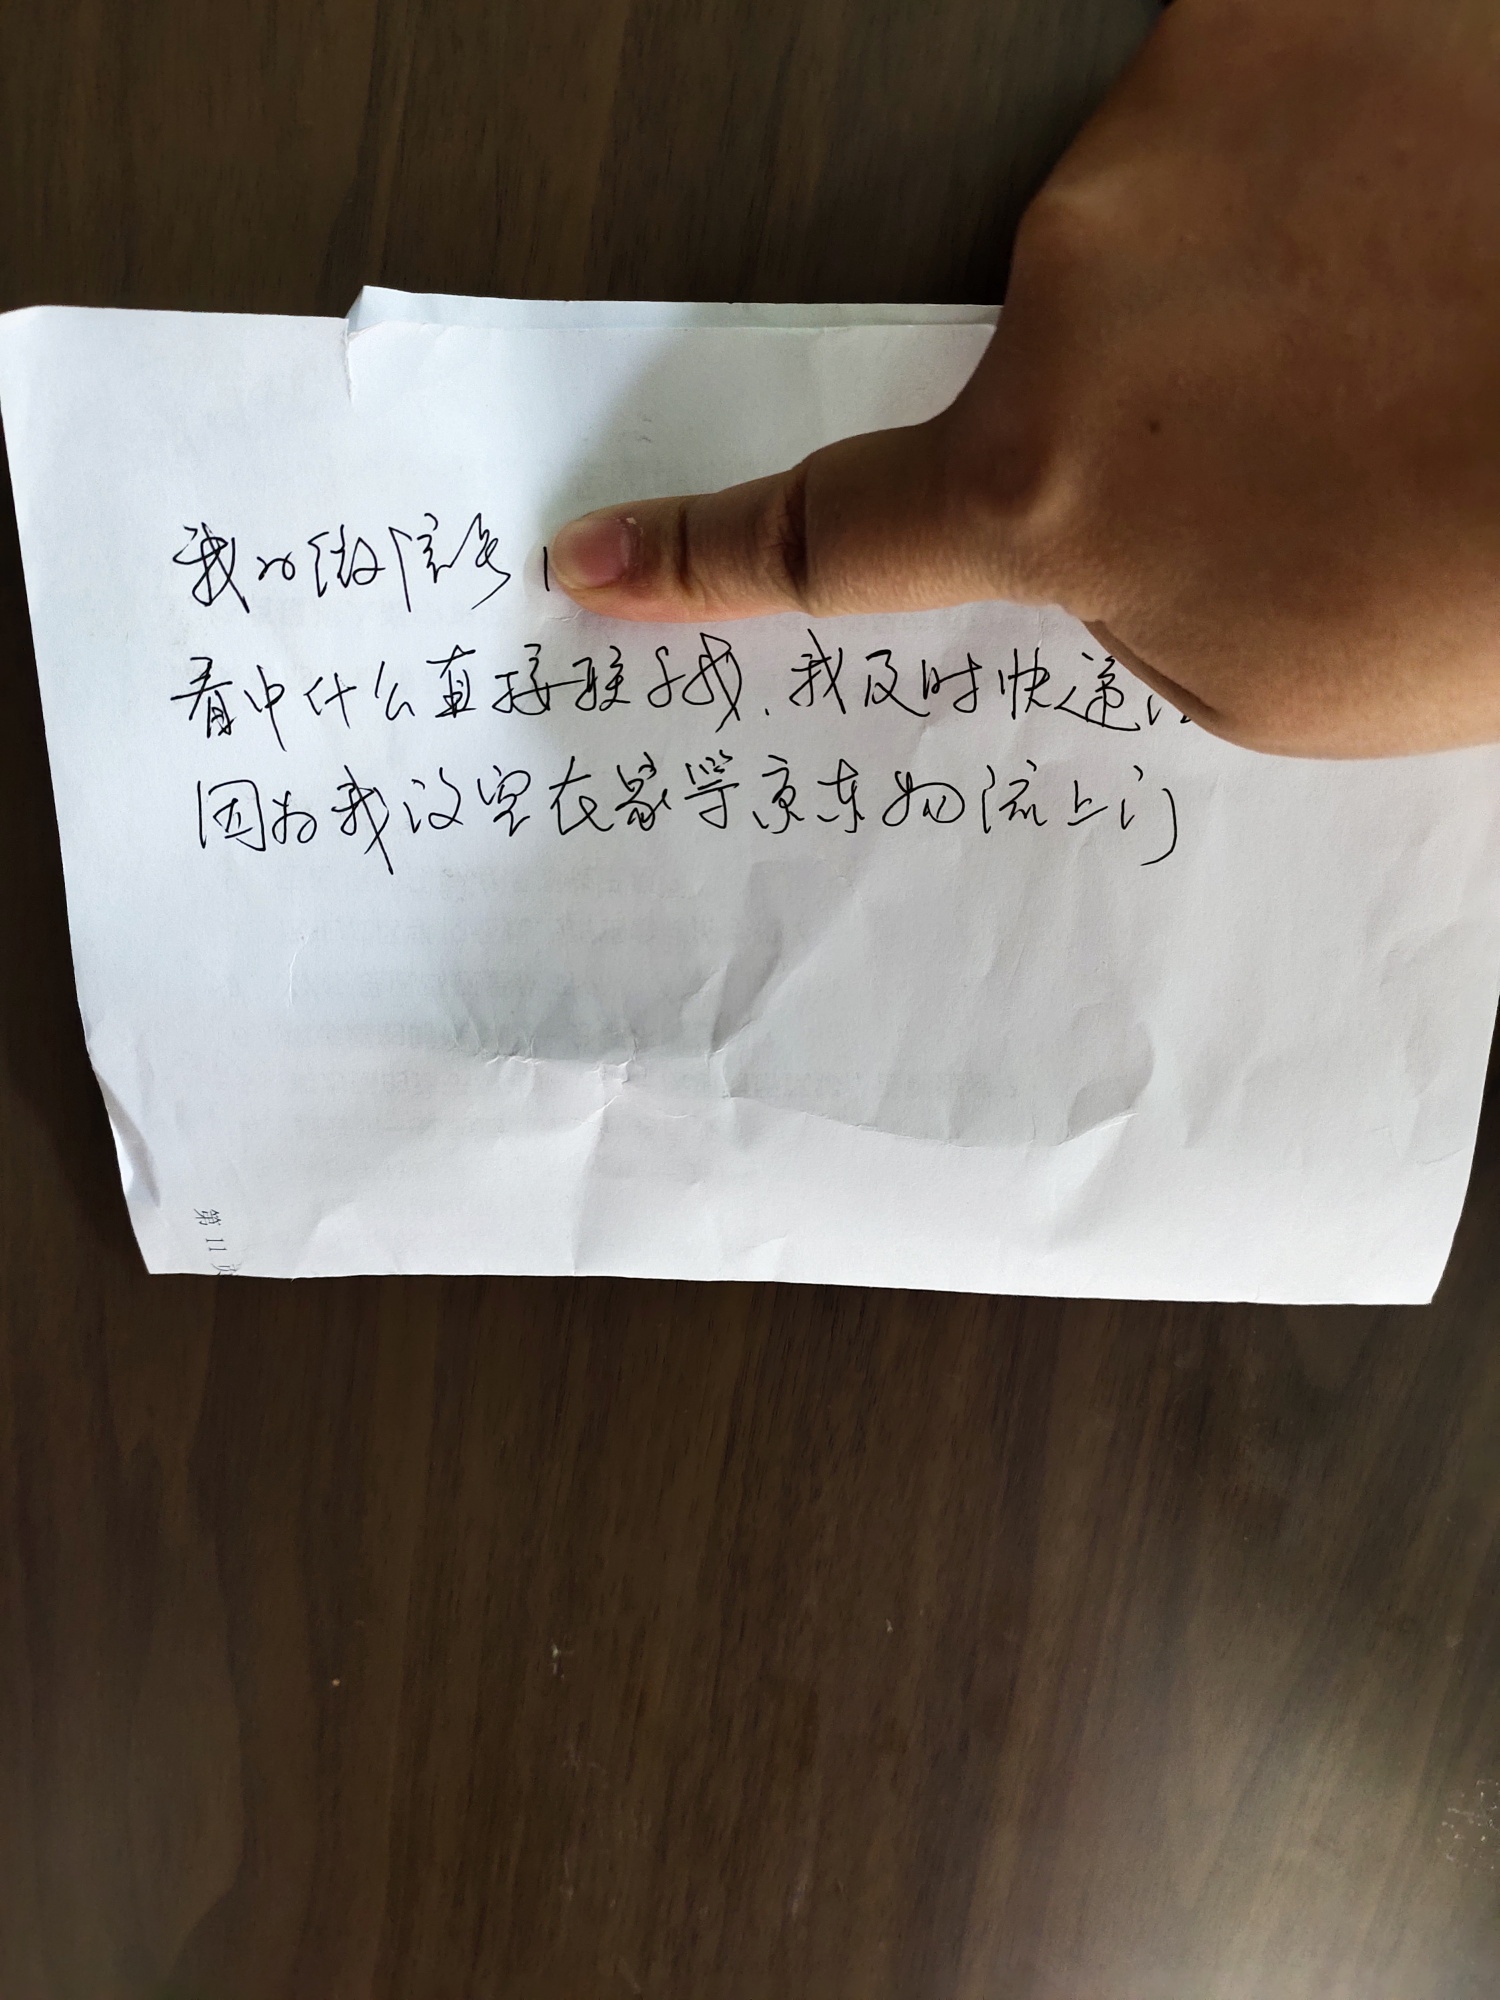 我的微信号 1
看中什么直接联系我.我及时快递
因为我没空在家等京东物流上门
第 11 页